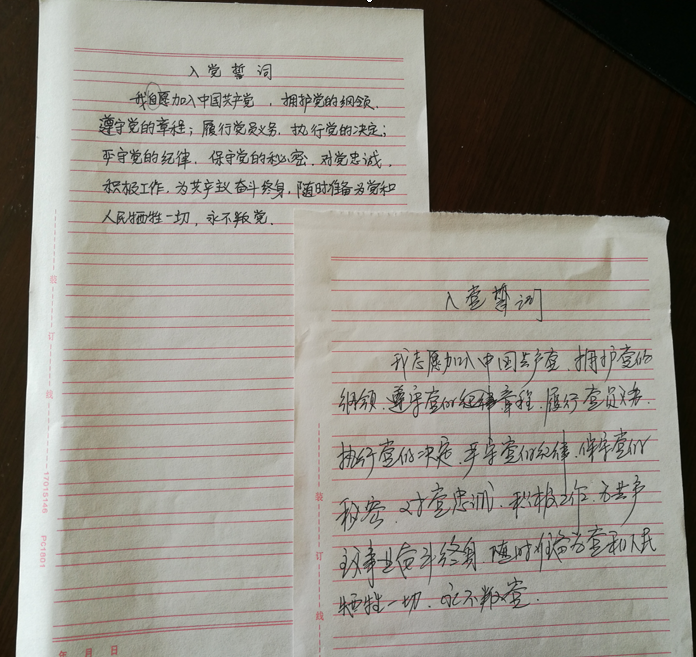 入党誓词
我自愿加入中国共产党，拥护党的纲领，
遵守党的章程；履行党员义务，执行党的决定；
严守党的纪律，保守党的秘密，对党忠诚，
积极工作，为共产主义奋斗终身，随时准备为党和
人民牺牲一切，永不叛党．
装
订
线
17015146
PC1601
年 月 日
入党誓词
我志愿加入中国共产党，拥护党的
纲领，遵守党的章程，履行党员义务，
执行党的决定，严守党的纪律，保守党的
秘密，对党忠诚，积极工作，为共产
主义事业奋斗终身，随时准备为党和人民
牺牲一切，永不叛党．
装
订
线